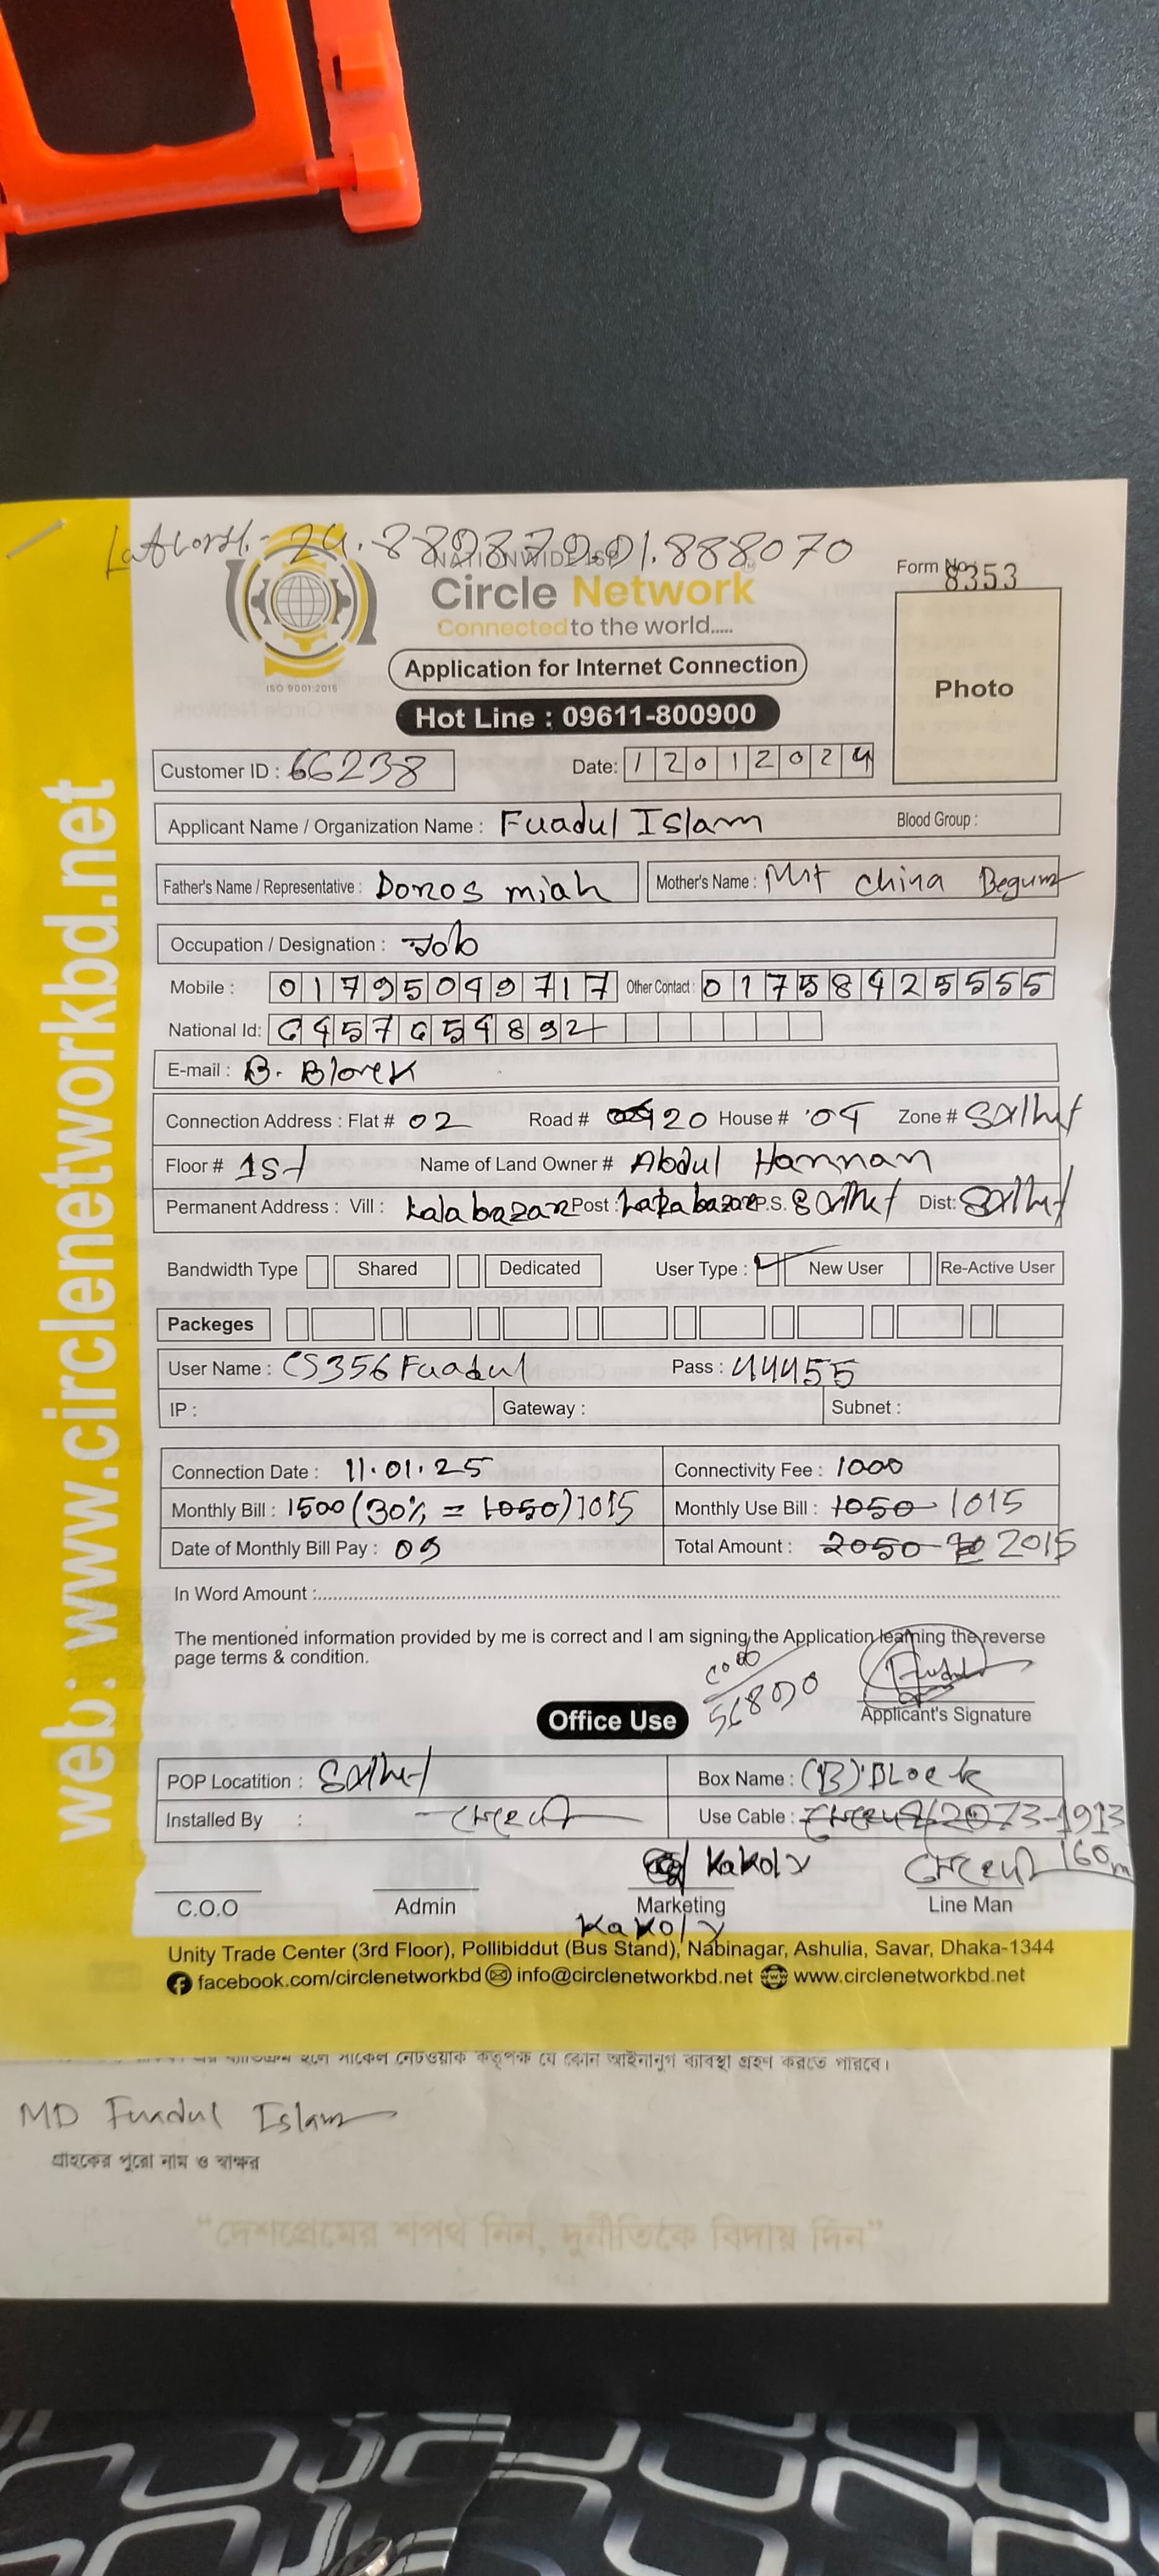 Lat Long:- 24.889879.91.888070
NATIONWIDE ISP
Circle Network
Connected to the world.....
Form No. 8353
ISO 9001:2015
Application for Internet Connection
Photo
Hot Line : 09611-800900
Customer ID : 66238 Date: 12012024
Applicant Name / Organization Name : Fuadul Islam Blood Group :
Father's Name / Representative : Donos miah Mother's Name : Mst China Begum
Occupation / Designation : Job
Mobile : 01795049717 Other Contact : 01758425555
National Id:
E-mail : B. Block
Connection Address : Flat # 02 Road # 20 House # 04 Zone # Sylhet
Floor # 1st Name of Land Owner # Abdul Hannan
Permanent Address : Vill : kalabazar Post : P.S. Sylhet Dist: Sylhet
Bandwidth Type Shared Dedicated User Type : New User Re-Active User
Packeges
User Name : CS356Fuadul Pass : 44455
IP : Gateway : Subnet :
Connection Date : 11.01.25 Connectivity Fee : 1000
Monthly Bill : 1500 (30% = 1050) 1015 Monthly Use Bill : 1050 1015
Date of Monthly Bill Pay : 09 Total Amount : 2050 2015
In Word Amount :
The mentioned information provided by me is correct and I am signing the Application learning the reverse
page terms & condition.
Fuadul
Applicant's Signature
Office Use
POP Locatition : Sylhet Box Name : (B) Block
Installed By : Use Cable : 2073-1913
160m
Kakoly
C.O.O Admin Marketing Line Man
Kakoly
Unity Trade Center (3rd Floor), Pollibiddut (Bus Stand), Nabinagar, Ashulia, Savar, Dhaka-1344
facebook.com/circlenetworkbd info@circlenetworkbd.net www.circlenetworkbd.net
web: www.circlenetworkbd.net
হলে সার্কেল নেটওয়ার্ক কর্তৃপক্ষ যে কোন আইনানুগ ব্যবস্থা গ্রহণ করতে পারবে।
MD Fuadul Islam
গ্রাহকের পুরো নাম ও স্বাক্ষর
“দেশপ্রেমের শপথ নিন, দুর্নীতিকে বিদায় দিন”